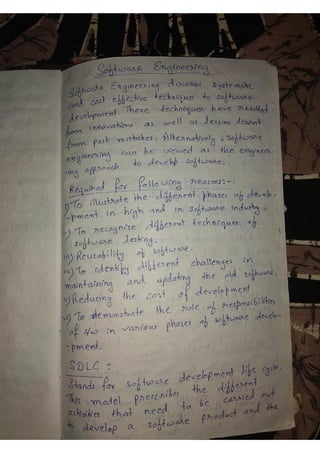 Software Engineering
Software Engineering discusses systematic
and cost effective technique to software
development. These techniques have resulted
from innovations as well as lessons learnt
from past mistakes. Alternatively, software
engineering can be viewed as the engineer-
-ing approach to develop software.
Required for following reasons:-
i) To illustrate the different phases of develo-
-pment in high and in software industry.
ii) To recognize different techniques of
software testing.
iii) Reusability of software.
iv) To identify different challenges in
maintaining and updating the old software.
v) Reducing the cost of development
vi) To demonstrate the role of responsibilities
of s/w in various phases of software develo-
-pment.
SDLC :
Stands for software development life cycle.
This model prescribes the different
activities that need to be carried out
to develop a software product and the